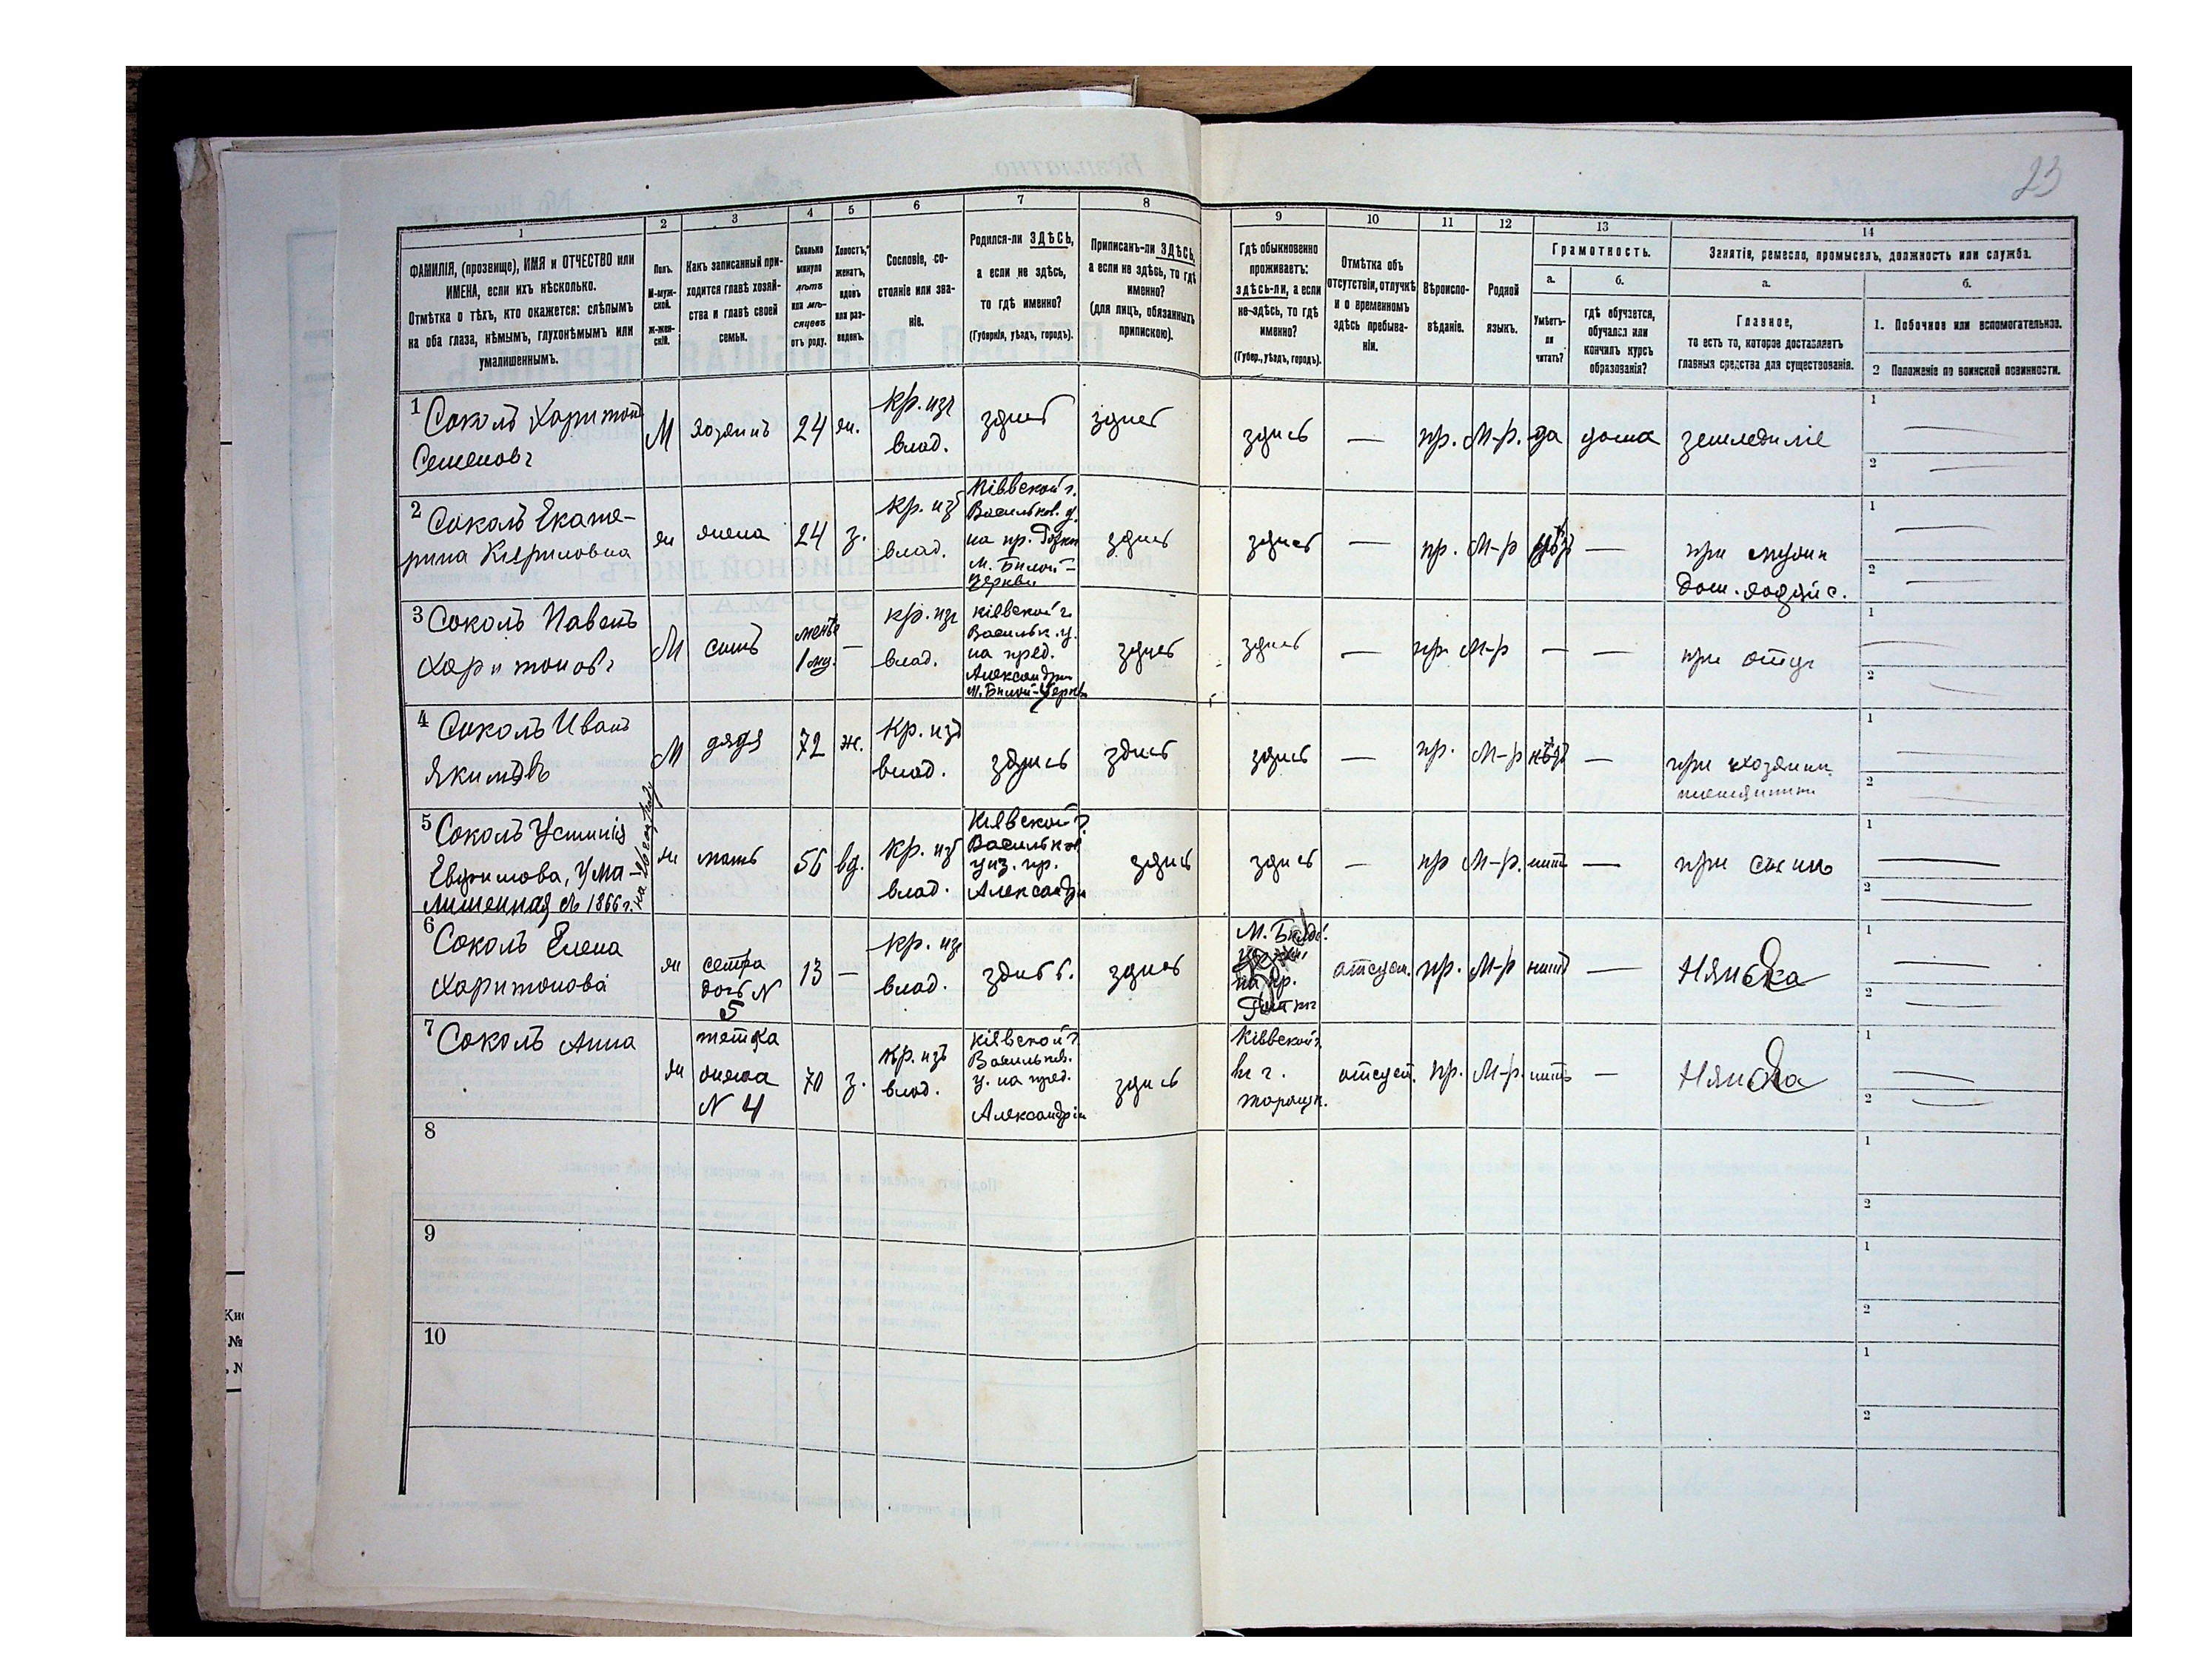 23
1
2
3
4
5
6
7
8
9
10
11
12
13
14
ФАМИЛІЯ, (прозвище), ИМЯ и ОТЧЕСТВО или
ИМЕНА, если ихъ нѣсколько.
Отмѣтка о тѣхъ, кто окажется: слѣпымъ
на оба глаза, нѣмымъ, глухонѣмымъ или
умалишеннымъ.
Полъ.
М-муж-
ской.
Ж-жен-
скій.
Какъ записанный при-
ходится главѣ хозяй-
ства и главѣ своей
семьи.
Сколько
минуло
лѣтъ
или мѣ-
сяцевъ
отъ роду.
Холостъ,
женатъ,
вдовъ
или раз-
веденъ.
Сословіе, со-
стояніе или зва-
ніе.
Родился-ли ЗДѢСЬ,
а если не здѣсь,
то гдѣ именно?
(Губернія, уѣздъ, городъ).
Приписанъ-ли ЗДѢСЬ,
а если не здѣсь, то гдѣ
именно?
(для лицъ, обязанныхъ
припискою).
Гдѣ обыкновенно
проживаетъ:
здѣсь-ли, а если
не-здѣсь, то гдѣ
именно?
(Губер., уѣздъ, городъ).
Отмѣтка объ
отсутствіи, отлучкѣ
и о временномъ
здѣсь пребыва-
ніи.
Вѣроиспо-
вѣданіе.
Родной
языкъ.
Грамотность.
а.
Умѣетъ-
ли
читать?
б.
гдѣ обучается,
обучался или
кончилъ курсъ
образованія?
Занятіе, ремесло, промыселъ, должность или служба.
а.
Главное,
то есть то, которое доставляетъ
главныя средства для существованія.
б.
1. Побочное или вспомогательное.
2 Положеніе по воинской повинности.
1 Соколъ Харитонъ
Семеновъ
М
хозяинъ
24
жн.
кр. изъ
влад.
здись
здись
здись
—
пр.
М-р.
да
дома
земледиліе
1
2
2 Соколъ Екате-
рина Кирииловна
жн
жена
24
з.
кр. изъ
влад.
Кіевской г.
Васильков. у.
на пр.
м. Билой-
Церкви
здись
здись
—
пр.
М-р
—
при
дом. хозяйс.
1
2
3 Соколъ Павелъ
Харитоновъ
М
сынъ
менѣе
1 мц.
—
кр. изъ
влад.
Кіевской г.
Васильк. у.
на пред.
Александри
м. Билой-Церкв
здись
здись
—
пр.
М-р
—
—
при отци
1
2
4 Соколъ Иванъ
Якимовъ
М
дядя
72
ж.
кр. изъ
влад.
здись
здись
здись
—
пр.
М-р
—
при хозяини
1
2
5 Соколъ Устинія
Евфимова, ума-
лишенная съ 1866 г.
жн
мать
56
вд.
кр. изъ
влад.
Кіевской г.
Васильков
уиз. пр.
Александри
здись
здись
—
пр
М-р.
нитъ
—
при сыни
1
2
6 Соколъ Елена
Харитонова
жн
сетра
дочь N
5
13
—
кр. изъ
влад.
здись.
здись
М. Билой
на пр.
отсут.
пр.
М-р
нитъ
—
Нянька
1
2
7 Соколъ Анна
жн
тетка
жена
N 4
70
з.
кр. изъ
влад.
Кіевской г.
Васильков.
у. на пред.
Александріи
здись
Кіевской г.
в г.
таращ.
отсут.
пр.
М-р.
нитъ
—
Нянька
1
2
8
1
2
9
1
2
10
1
2